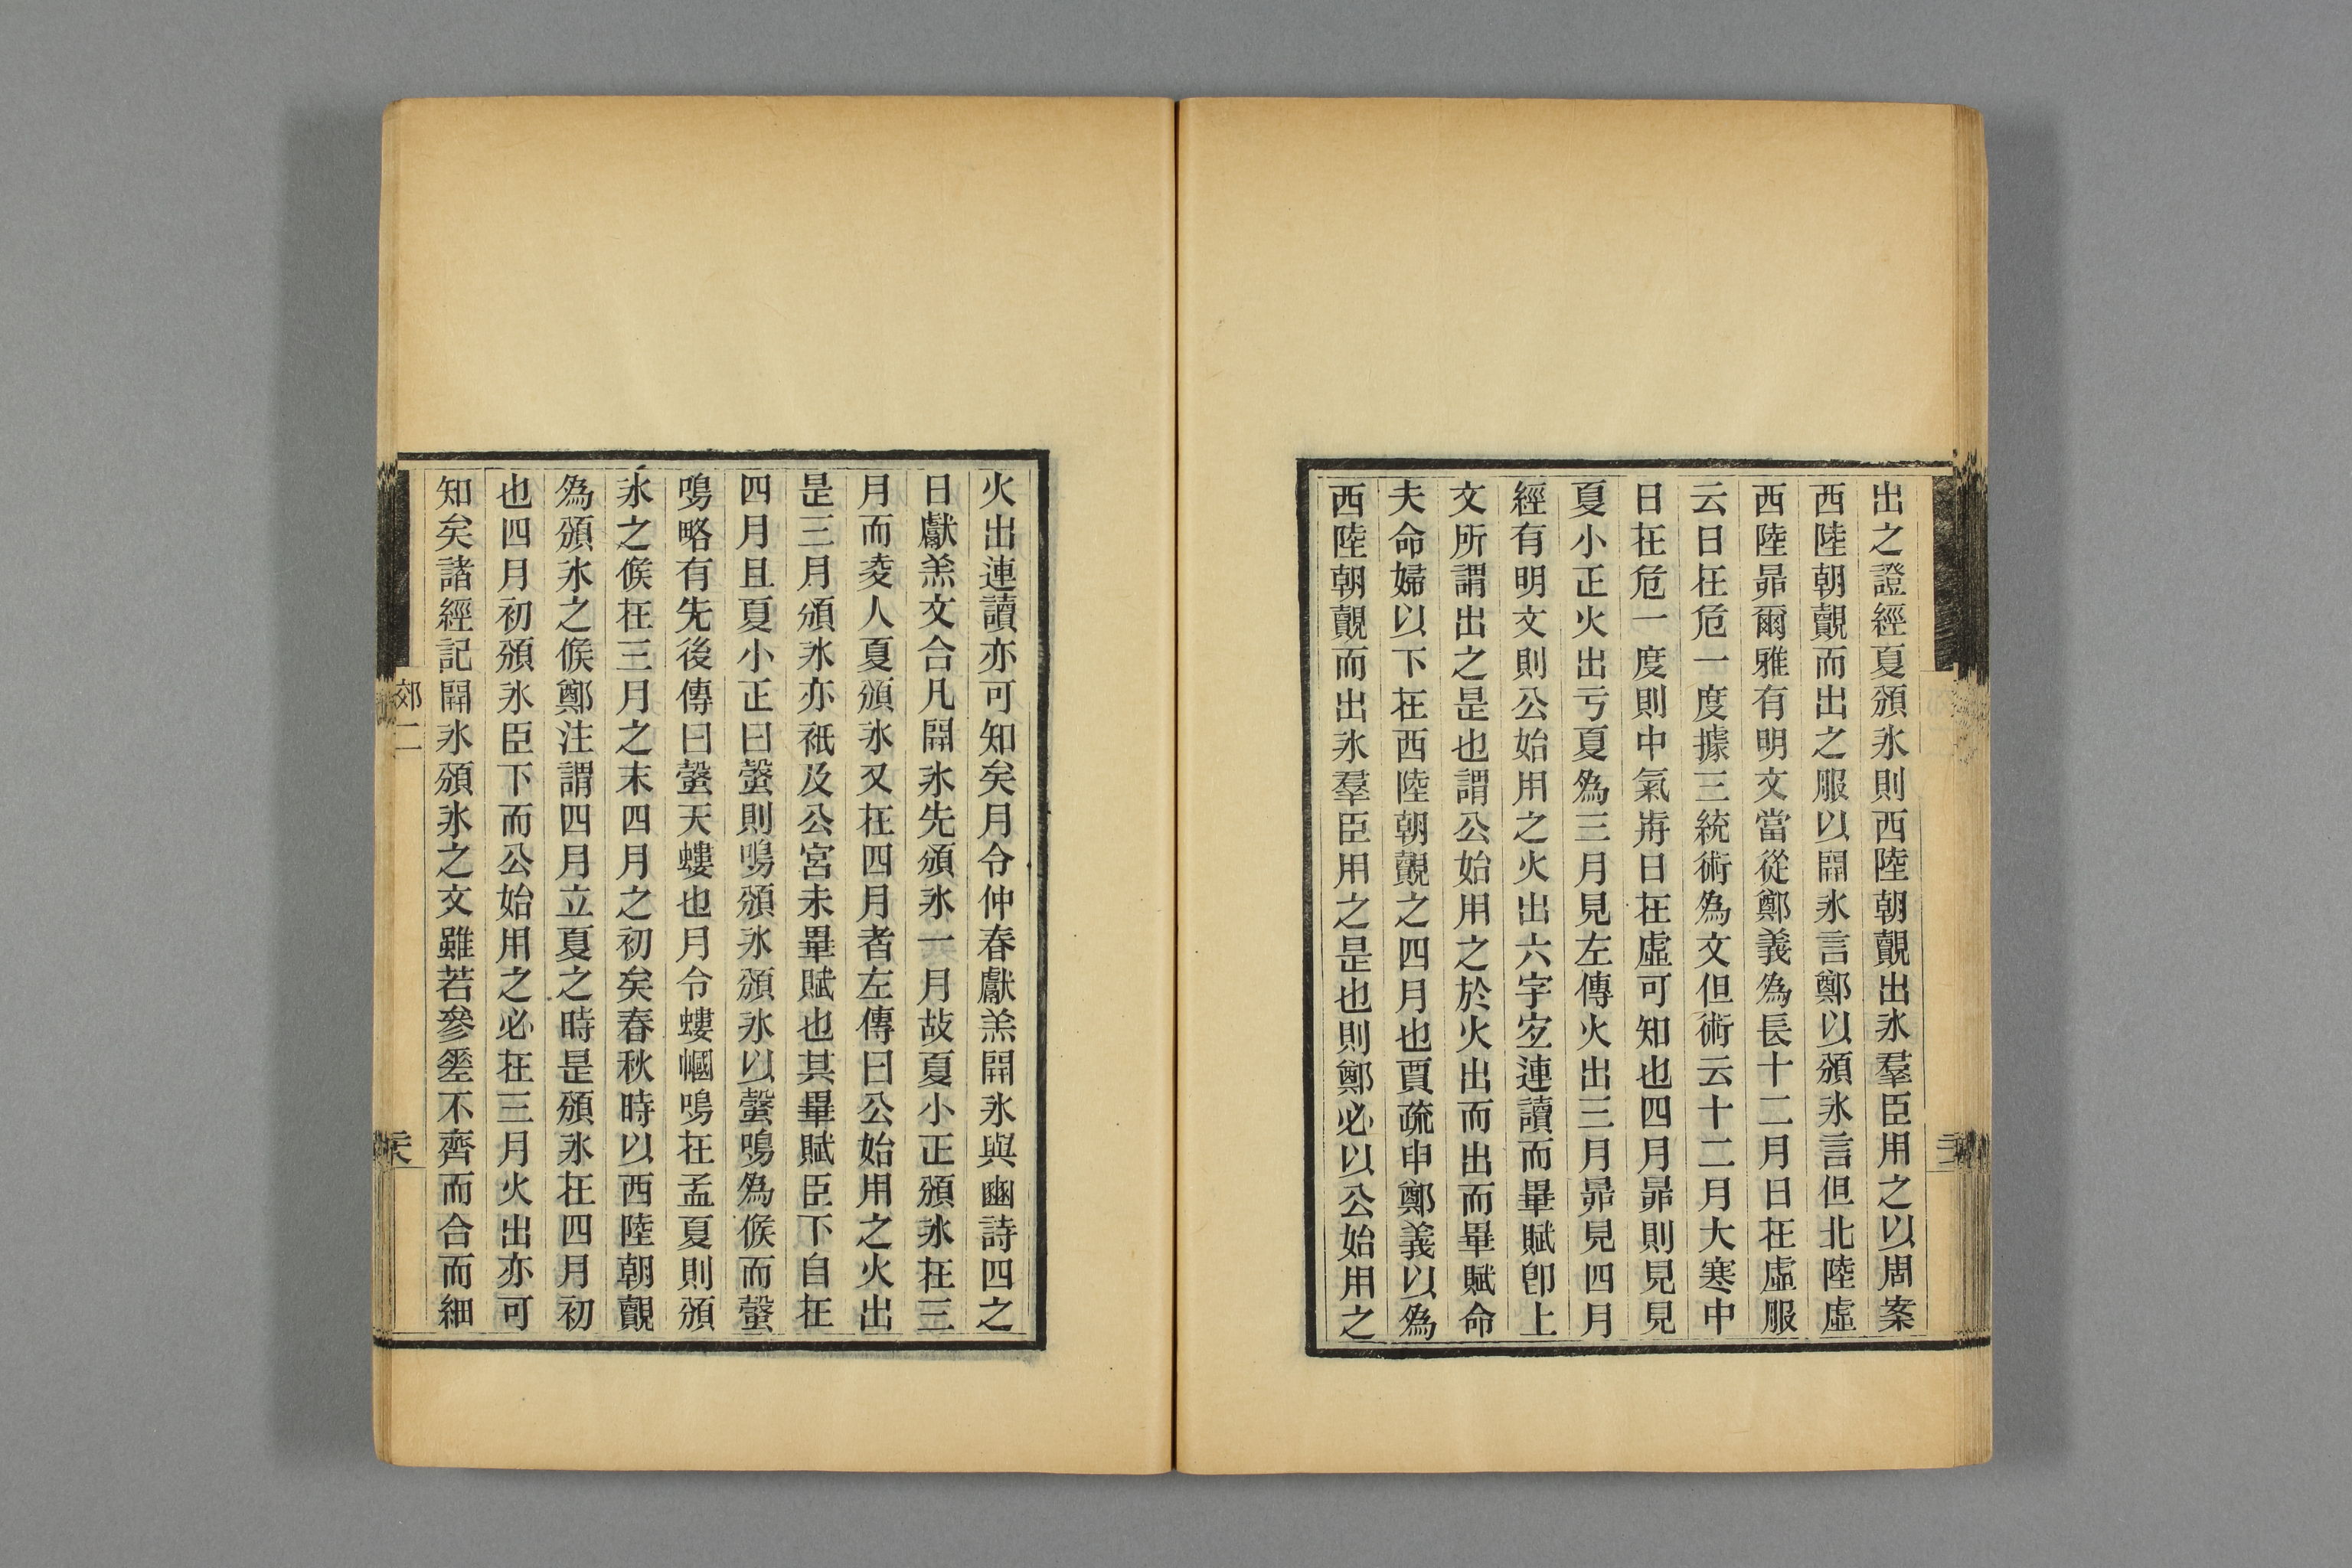 出之證經夏頒氷則西陸朝覿出氷羣臣用之以周案
西陸朝覿而出之服以開氷言鄭以頒氷言但北陸虛
西陸昴爾雅有明文當從鄭義為長十二月日在虛服
云日在危一度據三統術為文但術云十二月大寒中
日在危一度則中氣歬日在虛可知也四月昴則見見
夏小正火出亏夏為三月見左傳火出三月昴見四月
經有明文則公始用之火出六字㝎連讀而畢賦卽上
文所謂出之是也謂公始用之於火出而出而畢賦命
夫命婦以下在西陸朝覿之四月也賈疏申鄭義以為
西陸朝覿而出氷羣臣用之是也則鄭必以公始用之
火出連讀亦可知矣月令仲春獻羔開氷與豳詩四之
日獻羔文合凡開氷先頒氷一月故夏小正頒氷在三
月而凌人夏頒氷又在四月者左傳曰公始用之火出
是三月頒氷亦祇及公宮未畢賦也其畢賦臣下自在
四月且夏小正曰𧕅則鳴頒氷頒氷以𧕅鳴為候而𧕅
鳴略有先後傳曰𧕅天螻也月令螻蟈鳴在孟夏則頒
氷之候在三月之末四月之初矣春秋時以西陸朝覿
為頒氷之候鄭注謂四月立夏之時是頒氷在四月初
也四月初頒氷臣下而公始用之必在三月火出亦可
知矣諸經記開氷頒氷之文雖若參㘴不齊而合而細
郊二